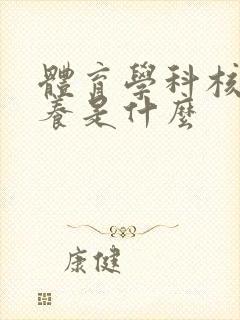 體育學科核
養是什麼
康健